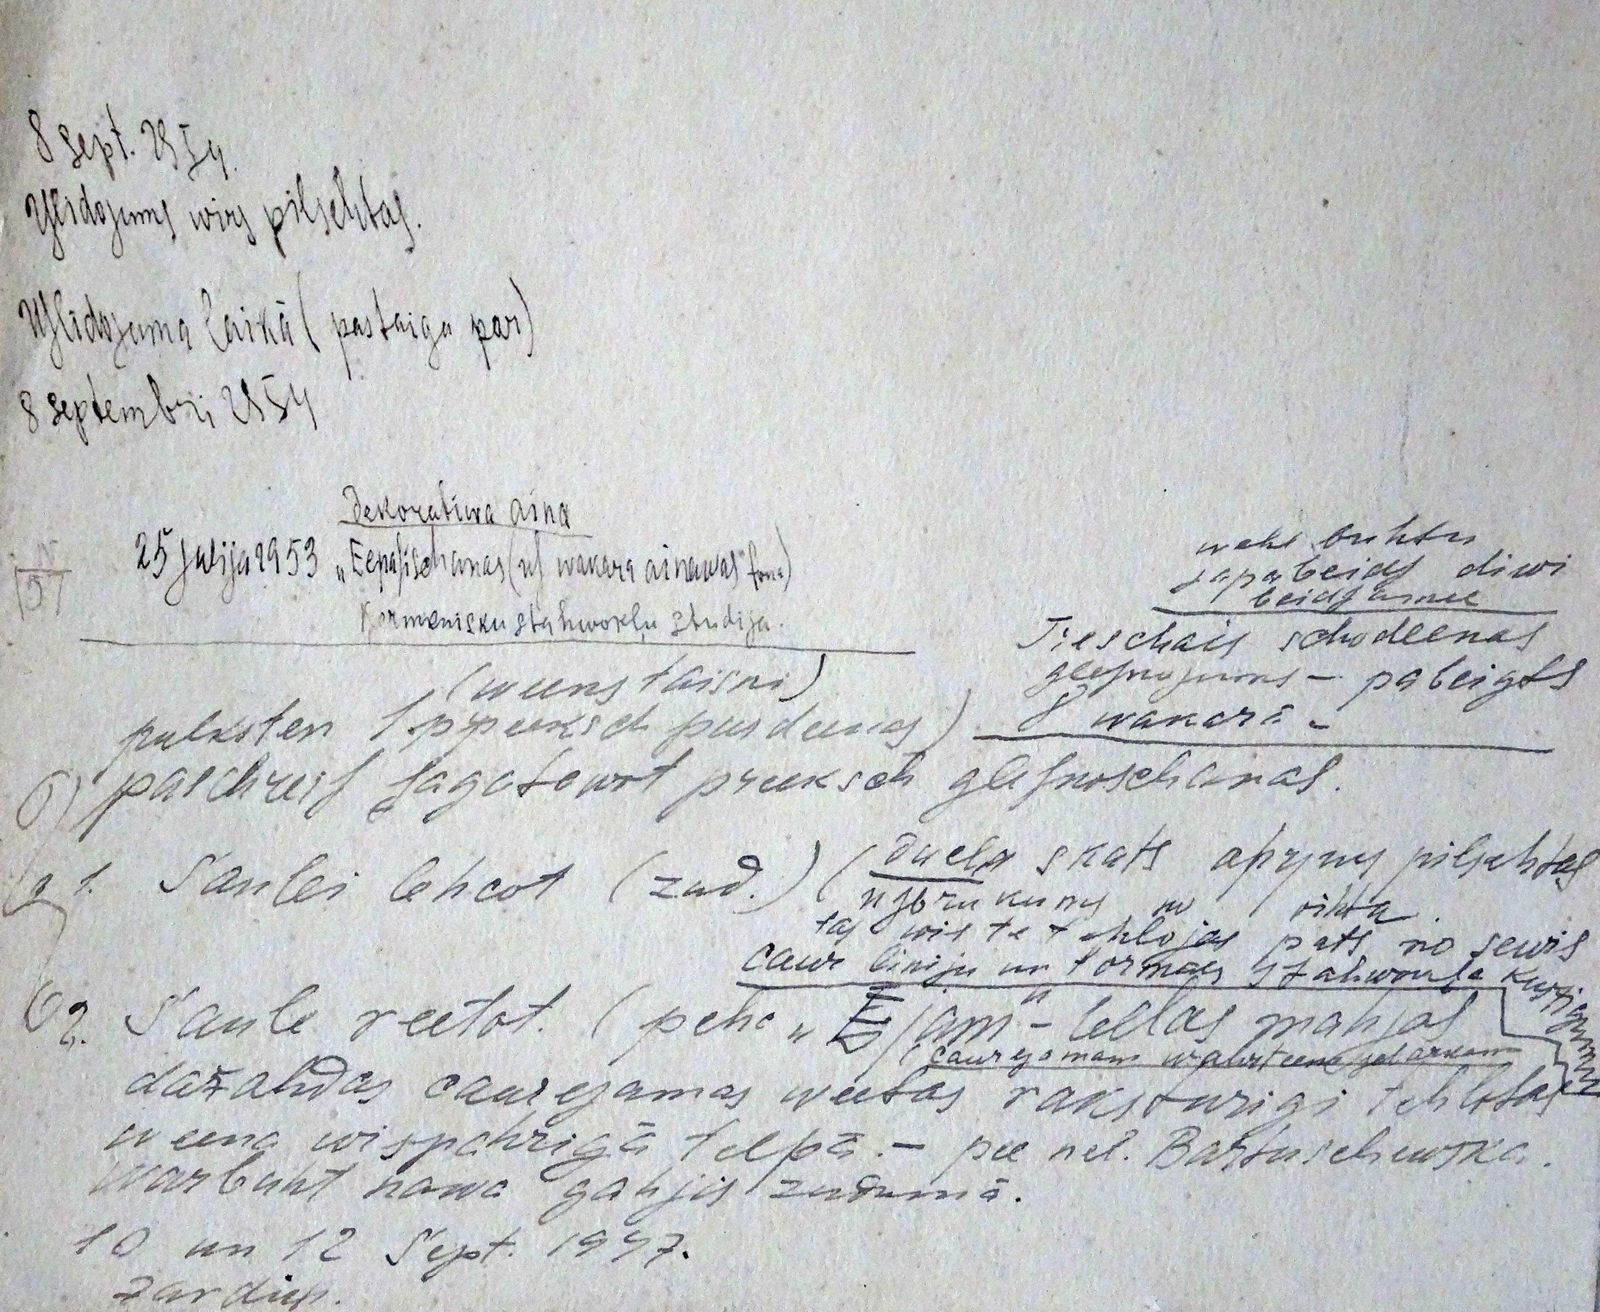 8 sept. 1954.
Uslidojums wirs pilsehtas.
Uslidojuma laikā (pastaiga par)
8 septembri 1954
Dekoratiwa aina
25 julija 1953 „Eepasischanas (us wakara ainawas fona)
Kermenisku stahwoklu studija.
wehl buhtu
japabeids diwi
beidsamee
Tieschais schodeenas
glesnojums – pabeigts
8 wakarā –
(weens taisni)
pulksten 1 preeksch pusdeenas)
paschreis sagatawot preeksch glesnoschanas.
1. Saulei lehcot (zud.) (duela skats apzims pilsehtas
usbrukums no rihta.
tas wis te tehlojas pats no sewis
caur liniju un formas stahwokla kustijumu
2. Saule reetot. (pehc „Ejam" – lellas mahjas
(caurejamam wahrteem jeb arkam
dažahdas caurejamas weetas raksturigi tehlotas
weena wispahrigā telpā. – pee nel. Bartuschewska.
warbuht nawa gahjis zudumā.
10 un 12 Sept. 1947.